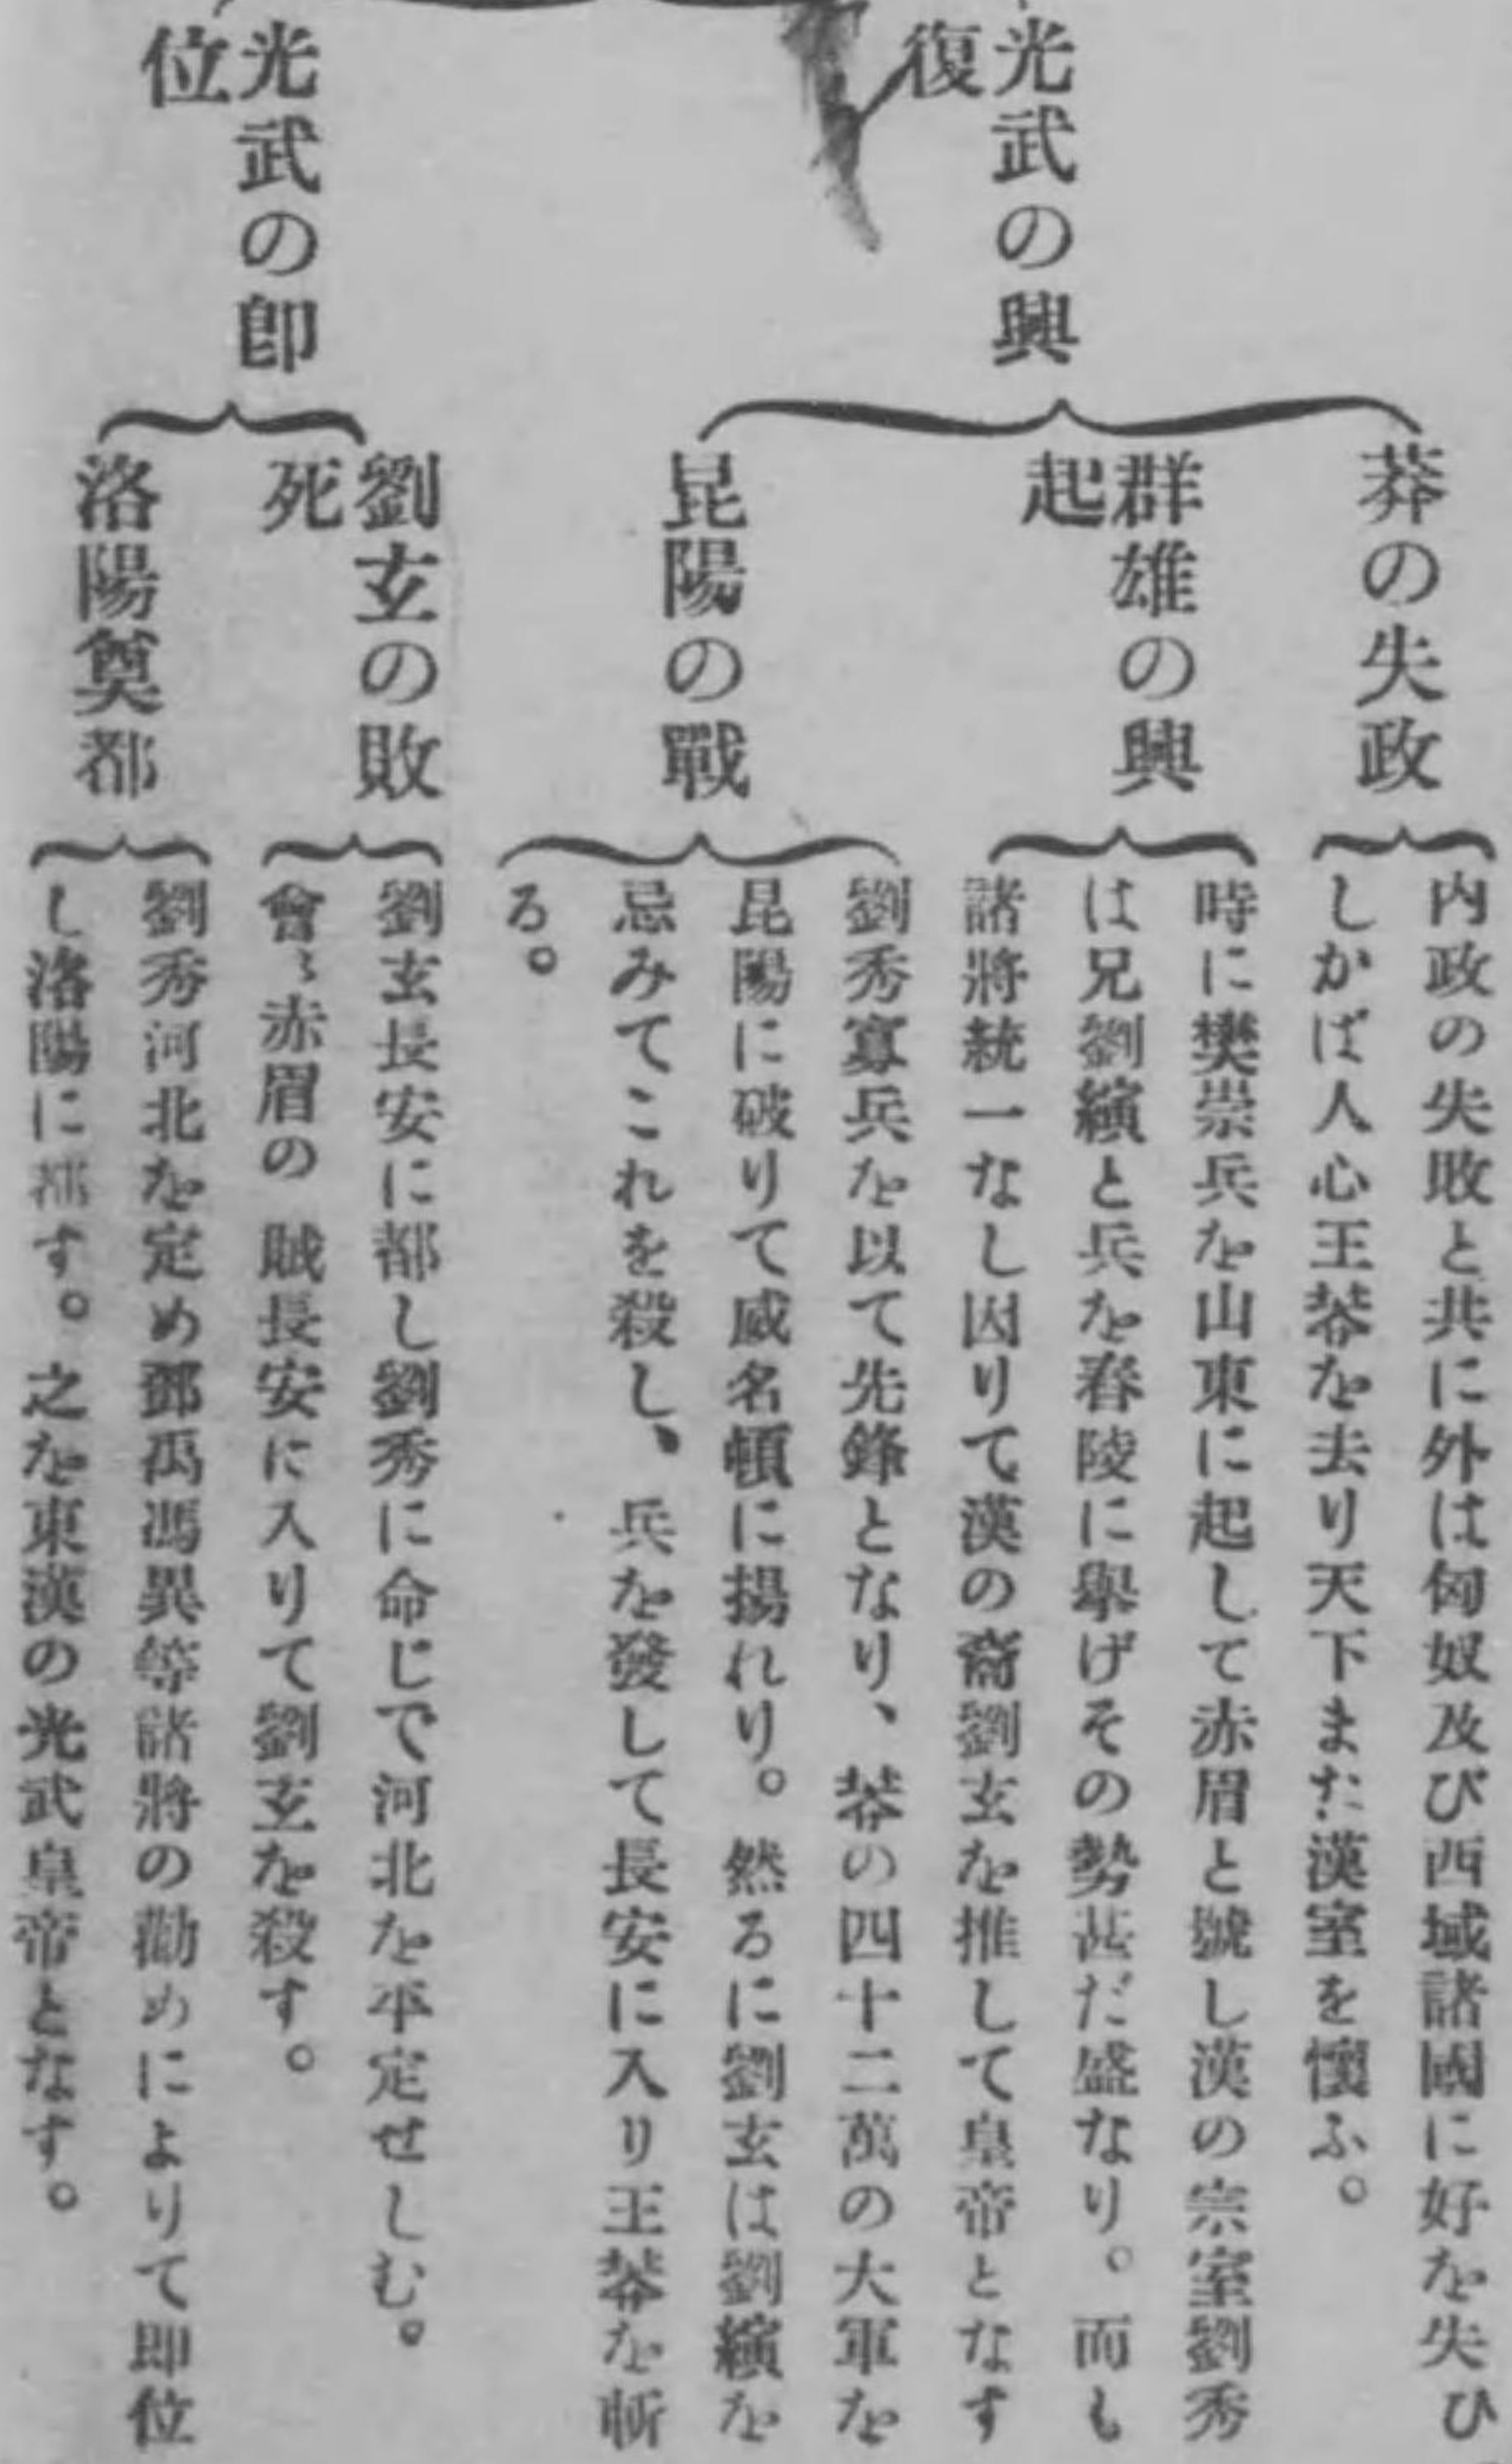 光武の興
復
莽の失政
内政の失敗と共に外は匈奴及び西域諸國に好を失ひ
しかば人心王莽を去り天下また漢室を懷ふ。
群雄の興
起
時に樊崇兵を山東に起して赤眉と號し漢の宗室劉秀
は兄劉縯と兵を舂陵に擧げその勢甚だ盛なり。而も
諸將統一なし因りて漢の裔劉玄を推して皇帝となす
昆陽の戰
劉秀寡兵を以て先鋒となり、莽の四十二萬の大軍を
昆陽に破りて威名頓に揚れり。然るに劉玄は劉縯を
忌みてこれを殺し、兵を發して長安に入り王莽を斬
る。
光武の卽
位
劉玄の敗
死
劉玄長安に都し劉秀に命じで河北を平定せしむ。
會〻赤眉の賊長安に入りて劉玄を殺す。
洛陽奠都
劉秀河北を定め鄧禹馮異等諸將の勸めによりて即位
し洛陽に都す。之を東漢の光武皇帝となす。